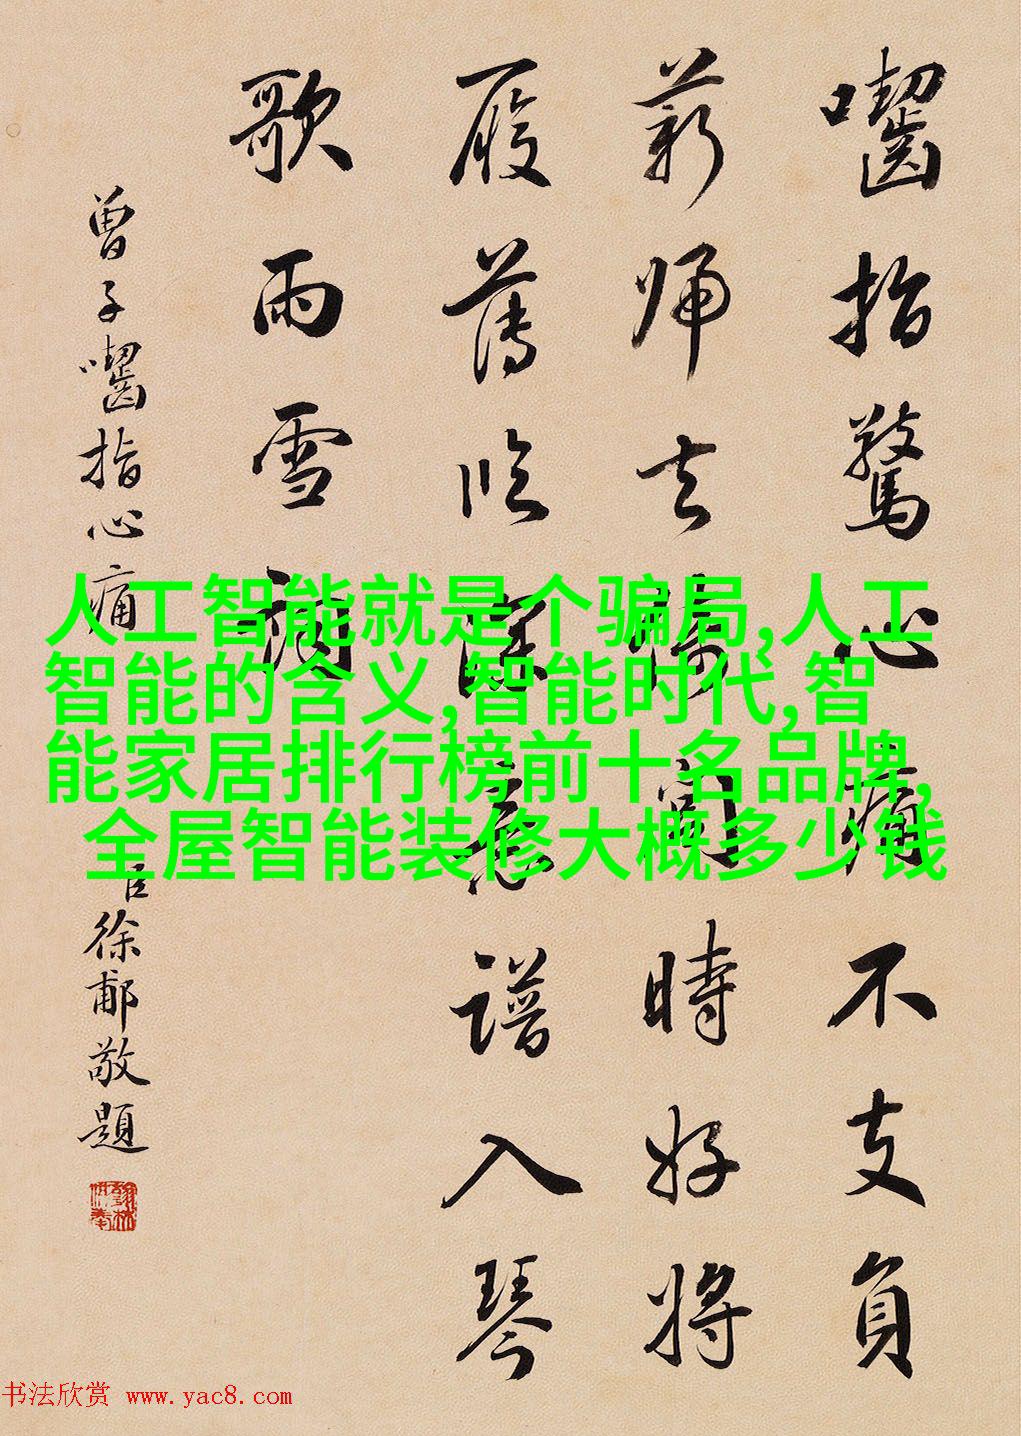 囓指驚心痛不支負
薪歸去倚閭時好將
履薄臨深意譜入琴
歌雨雪
曾子囓指心痛
臣徐郙敬題
人工智能就是个骗局,人工
智能的含义,智能时代,智
能家居排行榜前十名品牌,
全屋智能装修大概多少钱
书法欣赏 www.yac8.com